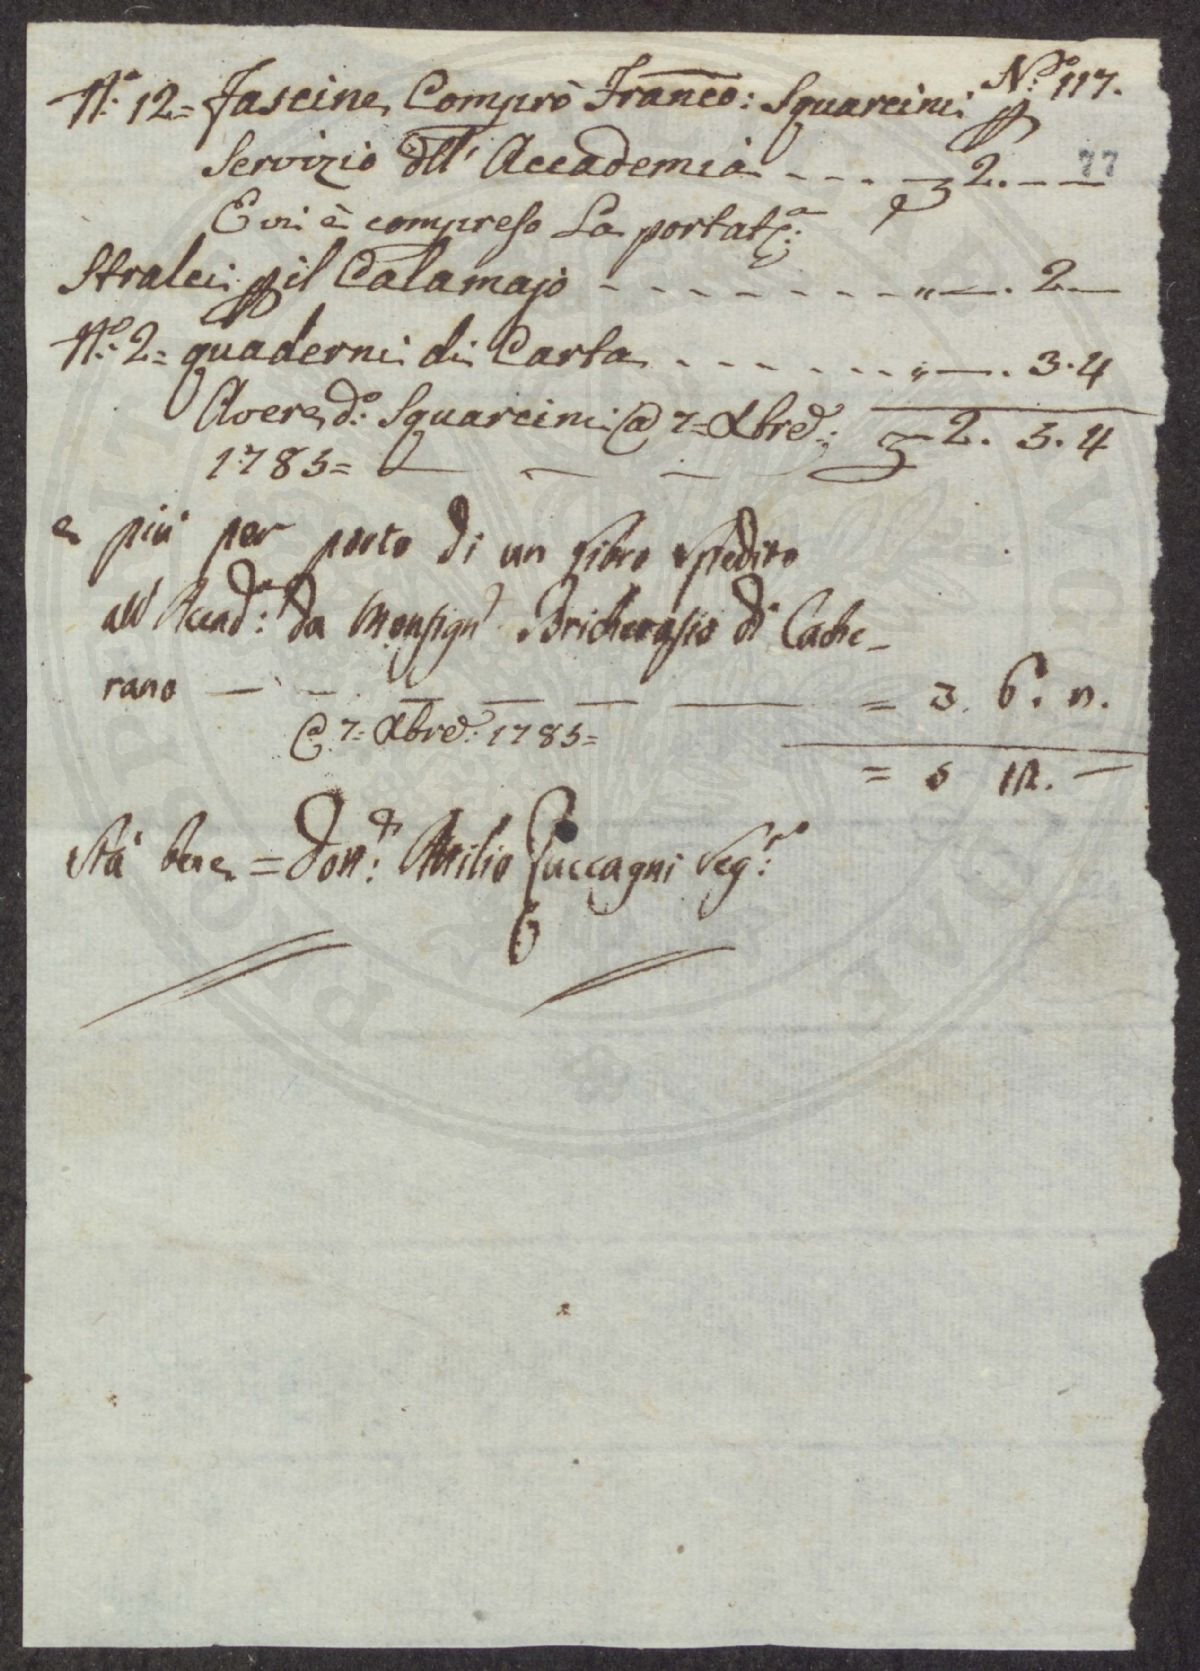 N.º 117.
N.º 12= Fascine Comprò Franco: Squarcini p
Servizio dell' Accademia - - - - 2. - -
77
E vi è compreso La portat.ª
Stralci p il Calamajo - - - - - - - - " — . 2 —
N.º 2= quaderni di Carta - - - - - - " — . 3. 4
Avere d.º Squarcini @ 7= Xbre: 2. 5. 4
1785= — — —
e più per porto di un libro spedito
all'Accad.ª da Monsign.r Bricherasio di Cache-
rano — — — — — — = 3. 6. n.
@ 7= Xbre: 1785=
= 5 12. —
Stà bene = Dott.r Attilio Zuccagni Seg.rio